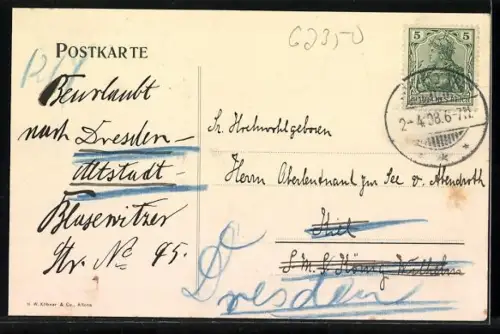 POSTKARTE
Beurlaubt
nach Dresden-
Altstadt-
Blasewitzer
Str. No 95.
5 5
2-4.08.6-7N.
Sr. Hochwohlgeboren
Herrn Oberleutnant zur See v. Abendroth
Kiel
S.M.S. König Wilhelm
Dresden